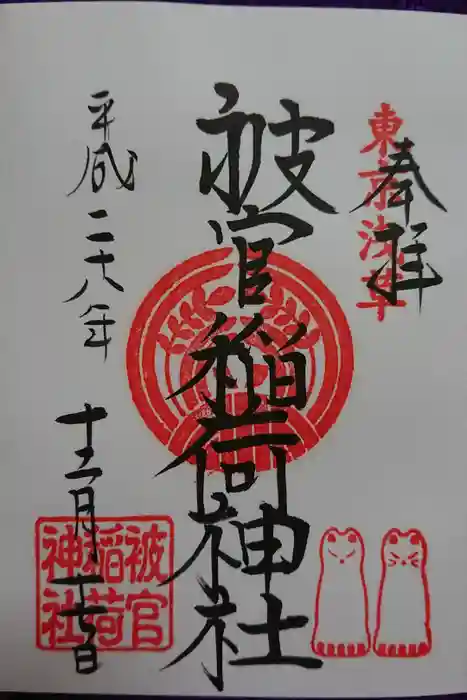 東京浅草
奉拝
被官稲荷神社
平成二十八年
十二月二十七日
被官
稲荷
神社